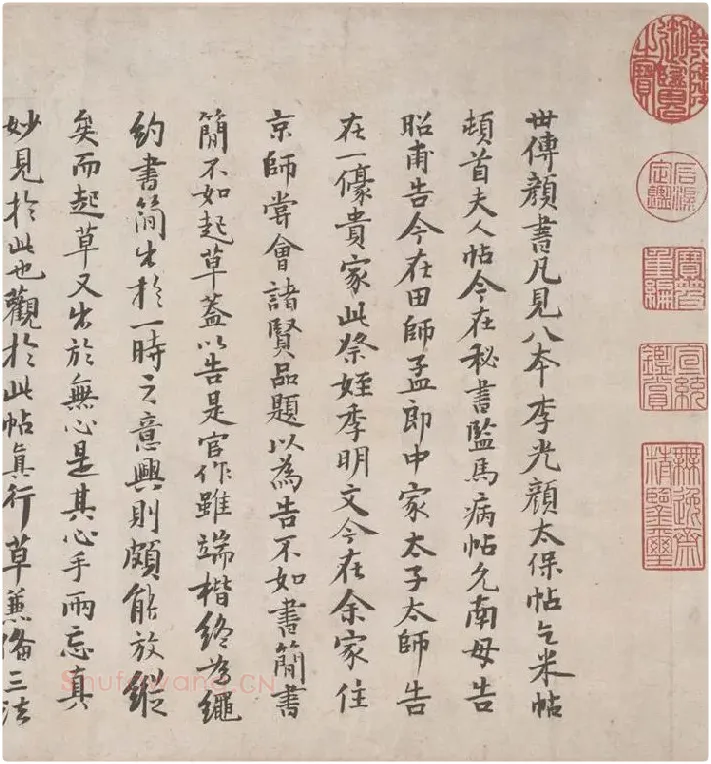 世傳顏書凡見八本李光顏太保帖乞米帖
頓首夫人帖今在秘書監馬病帖允南母告
昭甫告今在田師孟郎中家太子太師告
在一儫貴家此祭姪季明文今在余家住
京師嘗會諸賢品題以為告不如書簡書
簡不如起草蓋以告是官作雖端楷終為繩
約書簡出於一時之意興則頗能放縱
矣而起草又出於無心是其心手兩忘真
妙見於此也觀於此帖真行草兼備三法
乾隆御覽之寶
石渠定鑑
寶笈重編
宣統鑑賞
無逸齋精鑒璽
Shufawang.CN